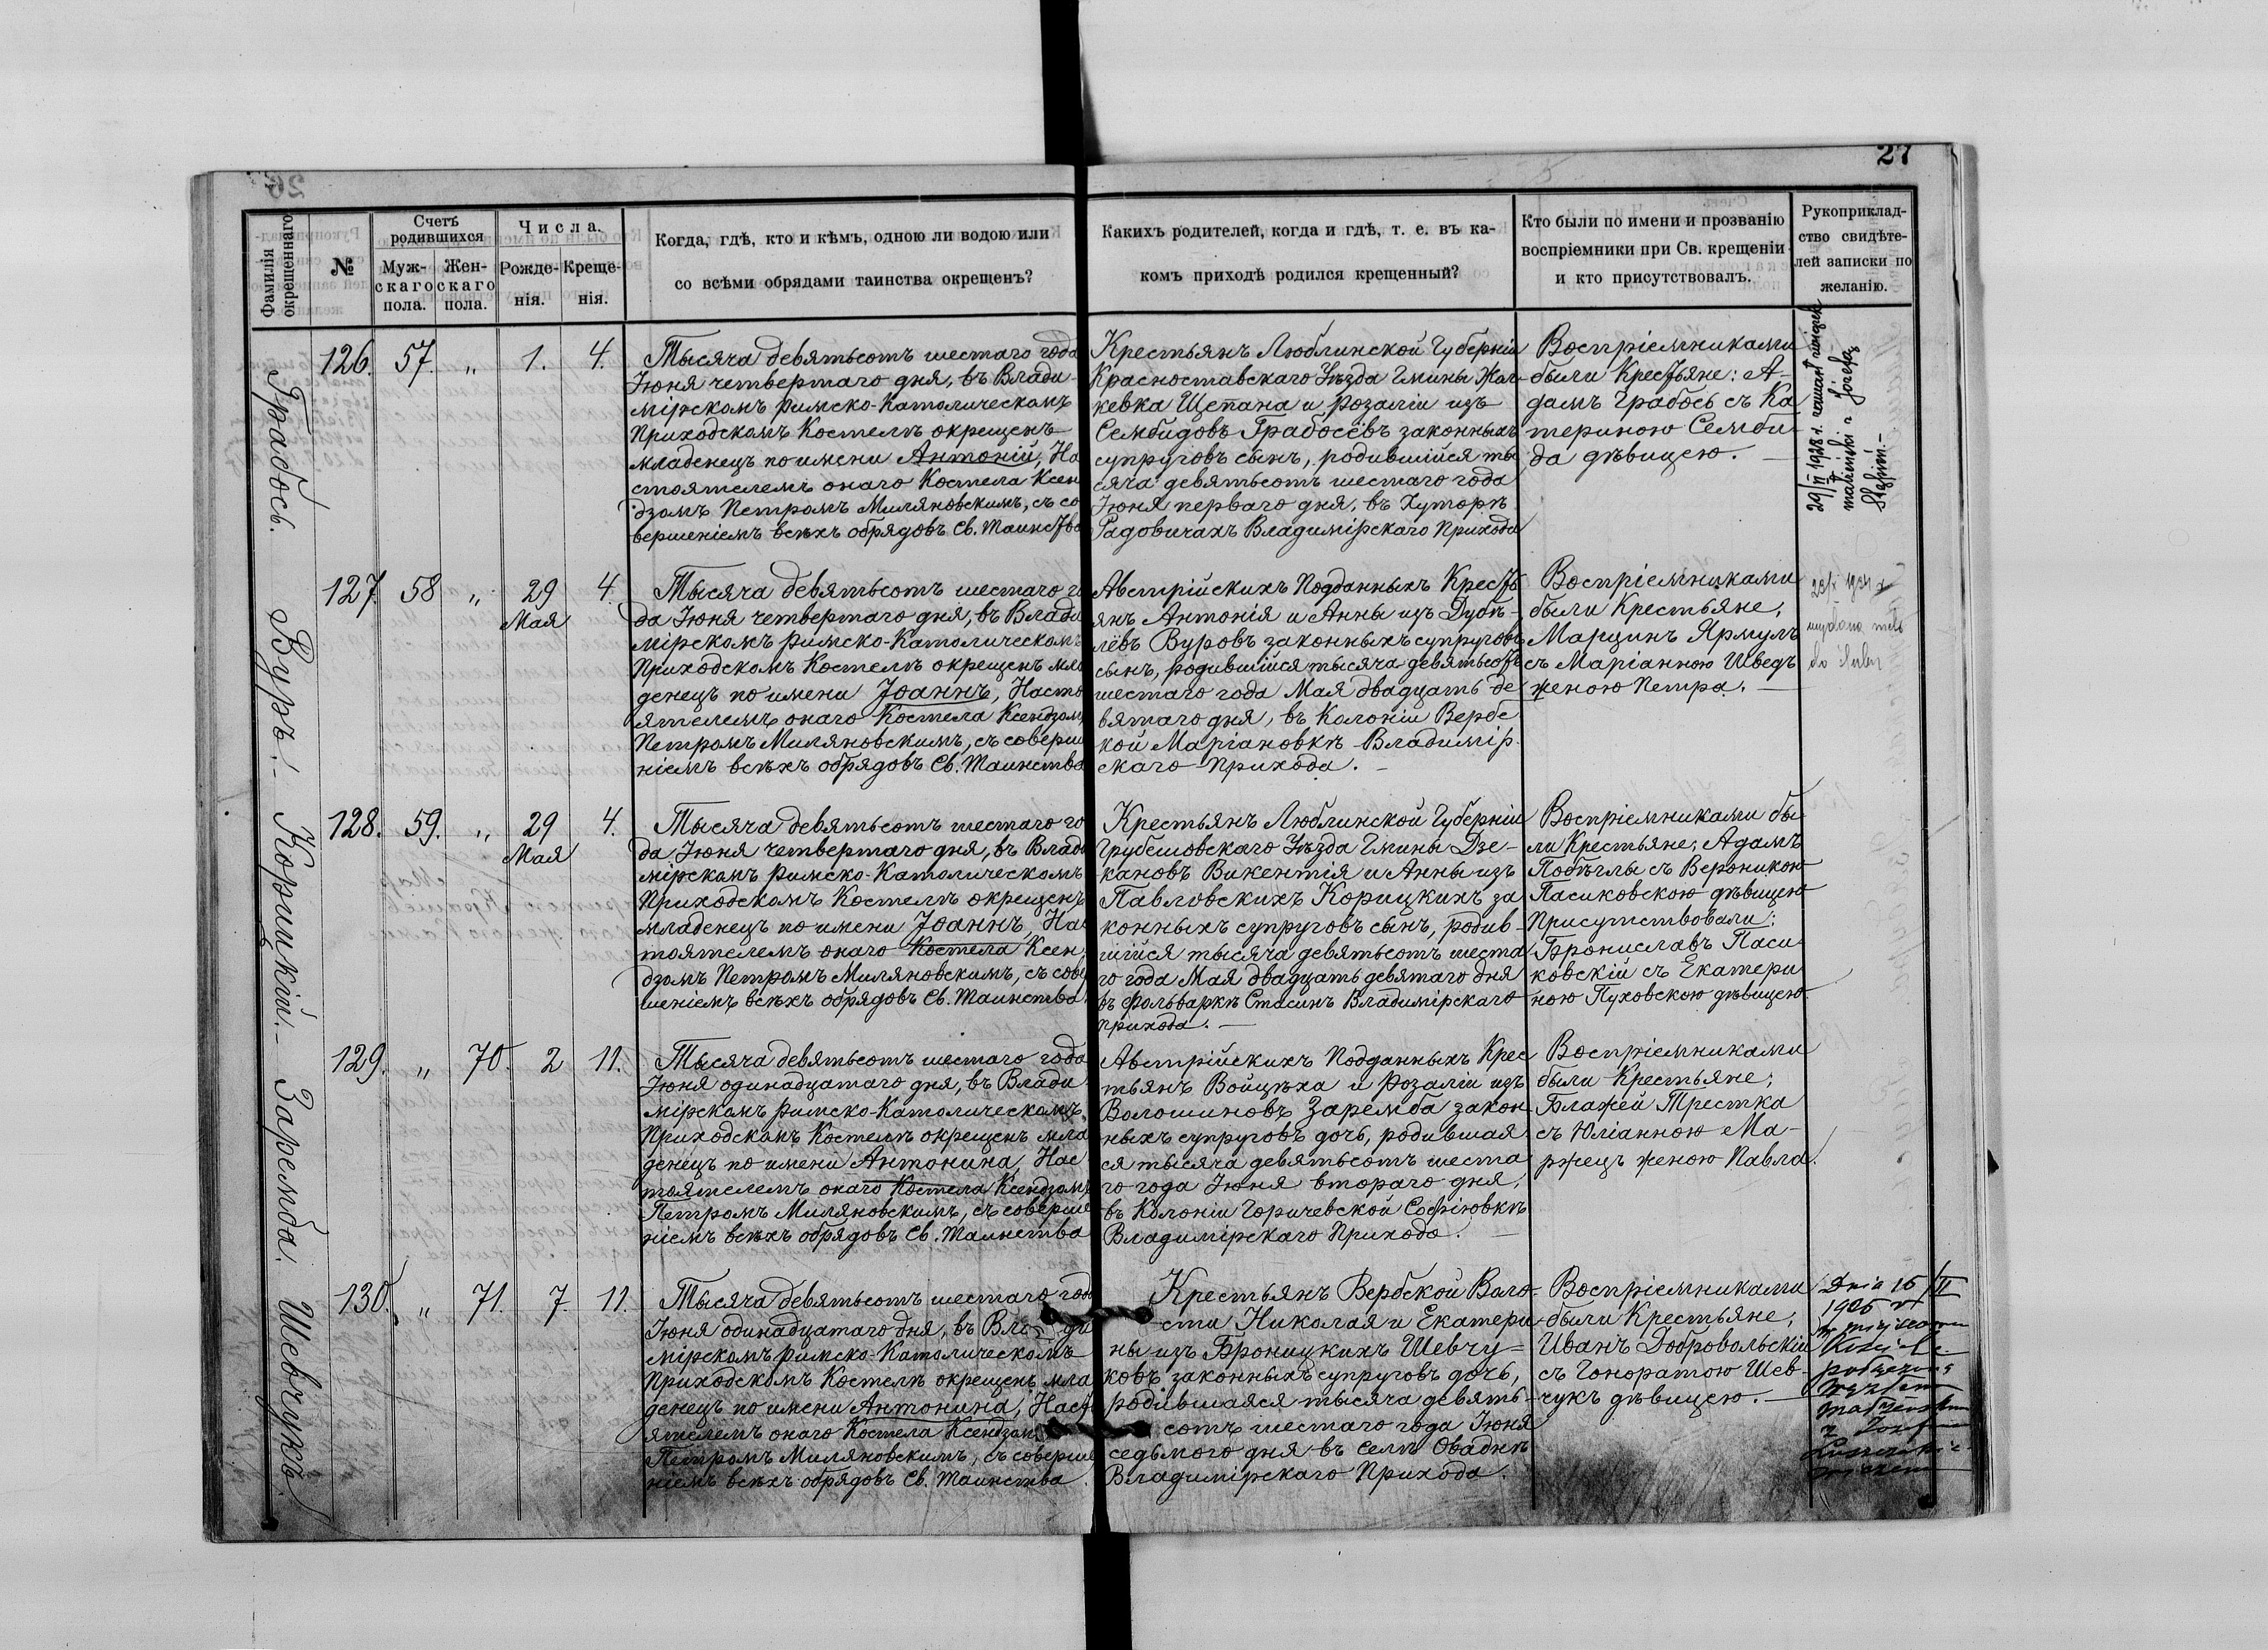 27
Фамилія окрещеннаго
№
Счетъ родившихся
Муж-
скаго
пола.
Жен-
скаго
пола.
Числа.
Рожде-
нія.
Креще-
нія.
Когда, гдѣ, кто и кѣмъ, одною ли водою или
со всѣми обрядами таинства окрещенъ?
Какихъ родителей, когда и гдѣ, т. е. въ ка-
комъ приходѣ родился крещенный?
Кто были по имени и прозванію
воспріемники при Св. крещеніи
и кто присутствовалъ.
Рукоприклад-
ство свидѣте-
лей записки по
желанію.
Грабось.
126. 57. „ 1. 4.
Тысяча девятьсотъ шестаго года
Іюня четвертаго дня, въ Влади-
мірскомъ Римско-Католическомъ
Приходскомъ Костелѣ окрещенъ
младенецъ по имени Антоній, На
стоятелемъ онаго Костела Ксен
дзомъ Петромъ Миляновскимъ, съ со
вершеніемъ всѣхъ обрядовъ Св. Таинства
Крестьянъ Люблинской Губерніи
Красноставскаго Уѣзда Гмины Жол-
кевка Щепана и Розаліи изъ
Сембидовъ Грабосёвъ законныхъ
супруговъ сынъ, родившійся ты
сяча девятьсотъ шестаго года
Іюня перваго дня, въ Хуторѣ
Радовичахъ Владимірскаго Прихода
Воспріемниками
были Крестьяне: А-
дамъ Грабось съ Ка
териною Сембі
да дѣвицею.
29/II 1928 r. zawarł związek
małżeński z Józefą
127. 58 „ 29 4.
Мая
Вуръ.
Тысяча девятьсотъ шестаго го
да Іюня четвертаго дня, въ Влади
мірскомъ Римско-Католическомъ
Приходскомъ Костелѣ окрещенъ мла
денецъ по имени Іоаннъ, Насто
ятелемъ онаго Костела Ксендзомъ
Петромъ Миляновскимъ, съ соверше
ніемъ всѣхъ обрядовъ Св. Таинства
Австрійскихъ Подданныхъ Кресть
янъ Антонія и Анны изъ Дубѣ-
лёвъ Вуровъ законныхъ супруговъ
сынъ, родившійся тысяча девятьсотъ
шестаго года Мая двадцать де
вятаго дня, въ Колоніи Вербс
кой Маріановкѣ Владимір
скаго Прихода.
Воспріемниками
были Крестьяне,
Марцинъ Ярмулъ
съ Маріанною Шведъ
женою Петра.
wydano metr
do ślubu
128. 59. „ 29 4.
Мая
Корицкій.
Тысяча девятьсотъ шестаго го
да, Іюня четвертаго дня, въ Влади
мірскомъ Римско-Католическомъ
Приходскомъ Костелѣ окрещенъ
младенецъ по имени Іоаннъ, Нас
тоятелемъ онаго Костела Ксен
дзомъ Петромъ Миляновскимъ, съ совер
шеніемъ всѣхъ обрядовъ Св. Таинства
Крестьянъ Люблинской Губерніи
Грубешовскаго Уѣзда Гмины Дзе-
кановъ Викентія и Анны изъ
Павловскихъ Корицкихъ за
конныхъ супруговъ сынъ, родив-
шійся тысяча девятьсотъ шеста
го года Мая двадцать девятаго дня
въ Фольваркѣ Стасинъ Владимірскаго
Прихода.
Воспріемниками бы-
ли Крестьяне, Адамъ
Побѣглы съ Вероникою
Пасиковскою дѣвицею
Присутствовали:
Брониславъ Паси
ковскій съ Екатери
ною Пуховскою дѣвицею.
129. „ 70. 2 11.
Заремба.
Тысяча девятьсотъ шестаго года
Іюня одинадцатаго дня, въ Влади
мірскомъ Римско-Католическомъ
Приходскомъ Костелѣ окрещенъ мла
денецъ по имени Антонина, Нас
тоятелемъ онаго Костела Ксендзомъ
Петромъ Миляновскимъ, съ соверше
ніемъ всѣхъ обрядовъ Св. Таинства
Австрійскихъ Подданныхъ Крес
тьянъ Войцѣха и Розаліи изъ
Волошиновъ Заремба закон
ныхъ супруговъ дочь, родившая
ся тысяча девятьсотъ шеста
го года Іюня втораго дня,
въ Колоніи Горичевской Софіювкѣ
Владимірскаго Прихода.
Воспріемниками
были Крестьяне;
Блажей Трестка
съ Юліанною Ма-
ржецъ женою Павла.
130. „ 71. 7. 11.
Шевчукъ.
Тысяча девятьсотъ шестаго года
Іюня одинадцатаго дня, въ Влади
мірскомъ Римско-Католическомъ
Приходскомъ Костелѣ окрещенъ мла
денецъ по имени Антонина, Насто
ятелемъ онаго Костела Ксендзомъ
Петромъ Миляновскимъ, съ соверше
ніемъ всѣхъ обрядовъ Св. Таинства.
Крестьянъ Вербской Воло-
сти Николая и Екатери
ны изъ Броницкихъ Шевчу-
ковъ законныхъ супруговъ дочь,
родившаяся тысяча девять-
сотъ шестаго года Іюня
седьмого дня въ селѣ Оваднѣ
Владимірскаго Прихода.
Воспріемниками
были Крестьяне,
Иванъ Добровольскій
съ Гоноратою Шев-
чукъ дѣвицею.
Dnia 16/II